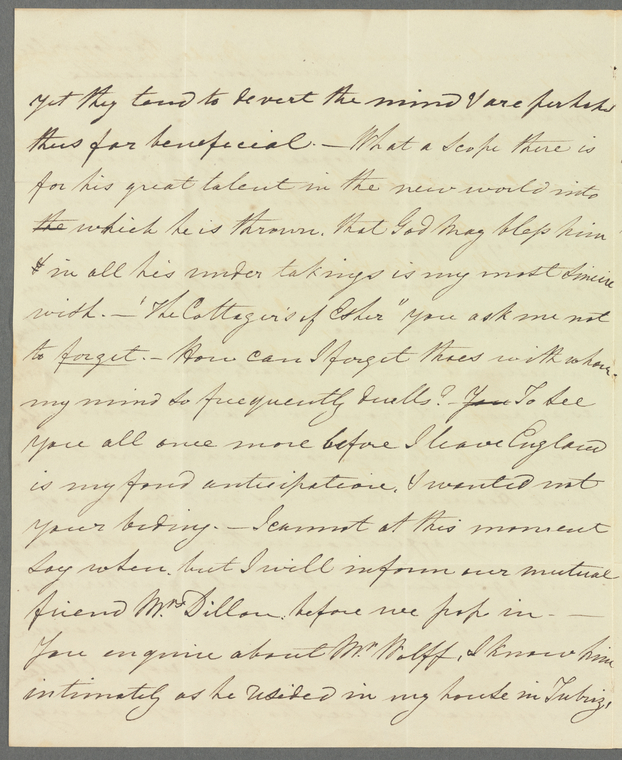 yet they tend to devert the mind & are perhaps
thus far beneficial. — What a scope there is
for his great talent in the new world into
the which he is thrown. that God may bless him
& in all his under takings is my most sincere
wish. — 'The Cottagers of Esher" you ask me not
to forget. — How can I forget thoes with whom
my mind so frequently dwells? You To see
you all once more before I leave England
is my fond anticipation, I wanted not
your biding. — I cannot at this moment
say when, but I will inform our mutual
friend Mrs Dillon. before we pop in — —
You enquire about Mr Wolff, I know him
intimately as he resided in my house in Tabriz,